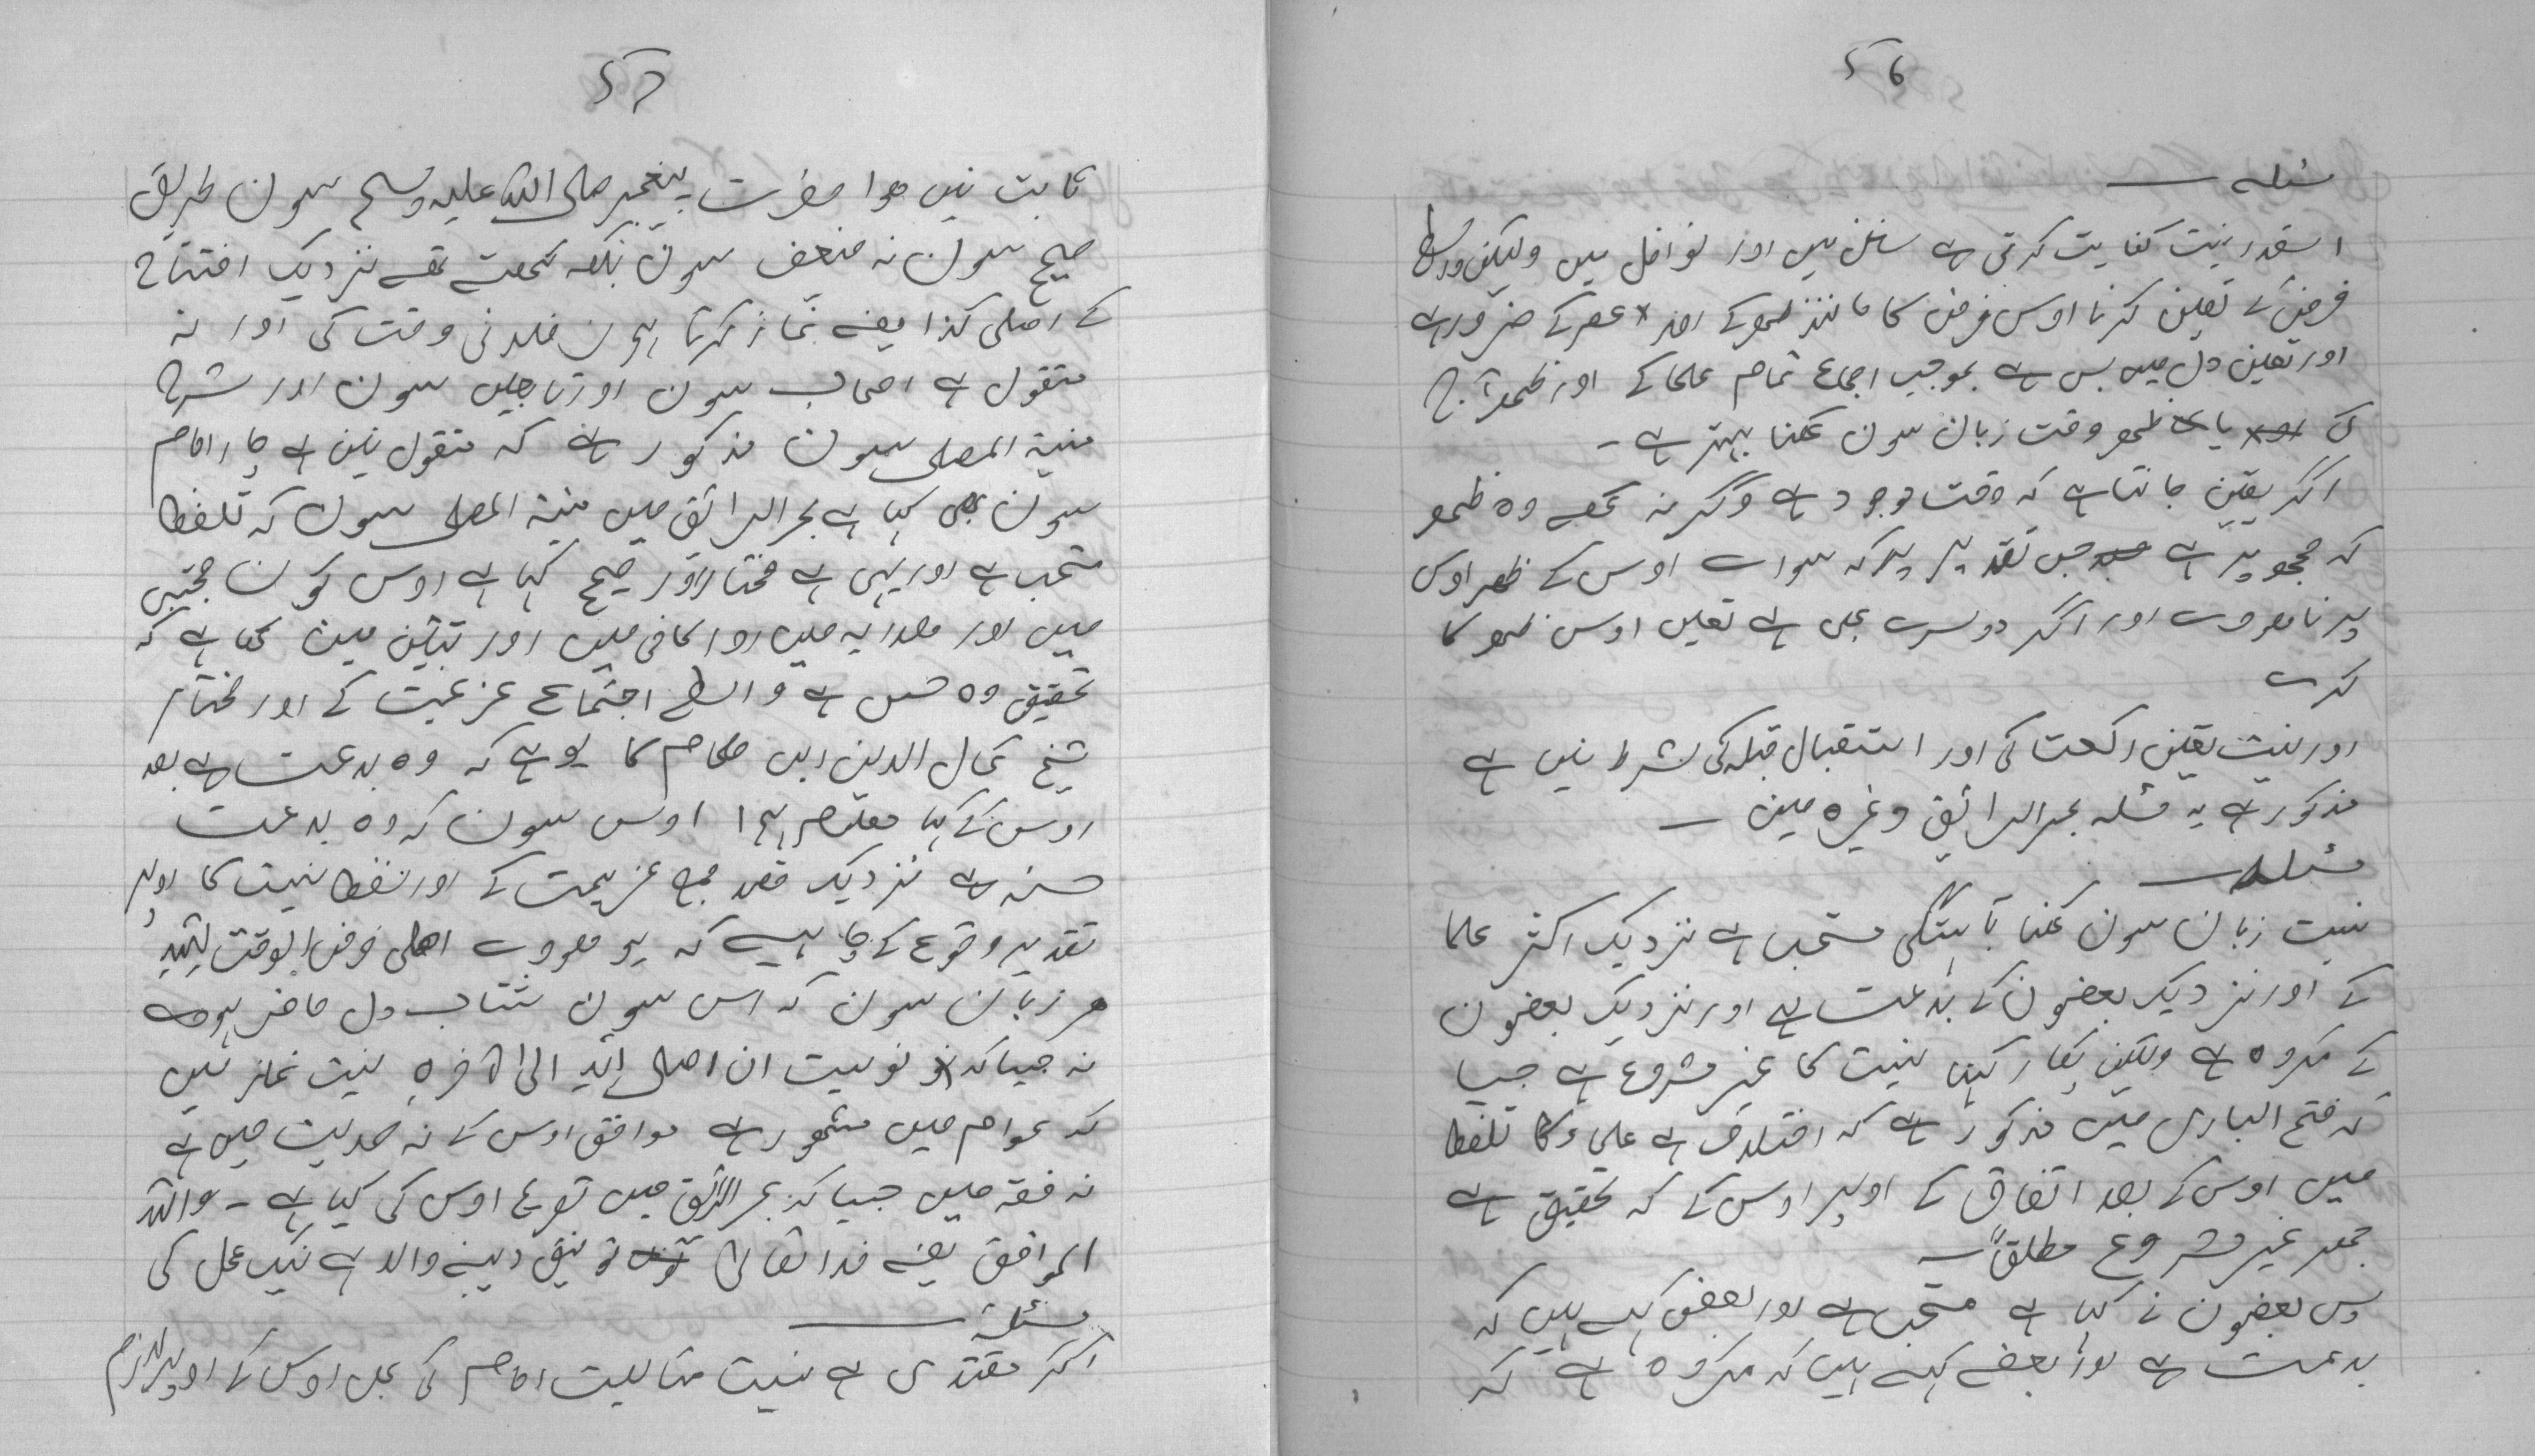 56
مسئلہ
اسقدر نیت کفایت کرتی ہے سنن میں اور نوافل میں ولیکن واسطے
فرض کے تعین کرنا اوس فرض کا مانند ظہر کے اور عصر کے ضرور ہے
اور تعین دل میں بس ہے بموجب اجماع تمام علما کے اور ظہر آج
کی یا ظہر وقت زبان سون کہنا بہتر ہے -
اگر یقین جانتا ہے کہ وقت موجود ہے وگرنہ کہے وہ ظہر
کہ مجھ پر ہے جس تقدیر پر کہ سواے اوس کے ظہر اوس
پر نا ہووے اور اگر دوسرے بھی ہے تعین اوس ظہر کا
کرے
اور نیت تعین رکعت کی اور استقبال قبلہ کی شرط نیں ہے
مذکور ہے یہ مسئلہ بحر الرائق وغیرہ میں
مسئلہ
نیت زبان سون کہنا بآہستگی مستحب ہے نزدیک اکثر علما
کے اور نزدیک بعضون کے بدعت ہے اور نزدیک بعضون
کے مکروہ ہے ولیکن پکار کہنا نیت کا غیر مشروع ہے جیسا
کہ فتح الباری میں مذکور ہے کہ اختلاف ہے علماء کا تلفظ
میں اوس کے بعد اتفاق کے اوپر اوس کے کہ تحقیق ہے
جہر غیر مشروع مطلقاً
بس بعضون نے کہا ہے مستحب ہے اور بعض کہے ہیں کہ
بدعت ہے اور بعضے کہے ہیں کہ مکروہ ہے کہ
57
ثابت نیں ہوا حضرت پیغمبر صلی اللہ علیہ وسلم سون طریق
صیح سون نہ ضعیف سون بلکہ کہتے تھے نزدیک افتتاح
کے اصلی کذا یعنے نماز کرتا ہون فلانی وقت کی اور نہ
منقول ہے اصحاب سون اور تابعین سون اور شرح
منیۃ المصلی سون مذکور ہے کہ منقول نیں ہے چار امام
سون بھی کہا ہے بحر الرائق میں منیۃ المصلی سون کہ تلفظ
مستحب ہے اور یہی ہے مختار اور صیح کہا ہے اوس کون مجتبیٰ
میں اور ہدایہ میں اور کافی میں اور تبیین میں کہا ہے کہ
تحقیق وہ حسن ہے واسطے اجتماع عزیمت کے اور مختار
شیخ کمال الدین ابن ہمام کا یو ہے کہ وہ بدعت ہے بعد
اوس کے کہا معلوم ہوا اوس سون کہ وہ بدعت
حسنہ ہے نزدیک قصد جمع عزیمت کے اور لفظ نیت کا اوپر
تقدیر وقوع کے چاہیے کہ یو ہووے اصلی فرض الوقت للہ
ہر زبان سون کہ اس سون شتاب دل حاضر ہووے
نہ جیسا کہ نویت ان اصلی للہ الیٰ آخرہ نیت نماز میں
کہ عوام میں مشہور ہے موافق اوس کے نہ حدیث میں ہے
نہ فقہ میں جیسا کہ بحر الرائق میں تصریح اوس کی کیا ہے - واللہ
الموافق یعنے خدا تعالیٰ توفیق دینے والا ہے نیک عمل کی
مسئلہ
اگر مقتدی ہے نیت متابعت امام کی بھی اوس کے اوپر لازم